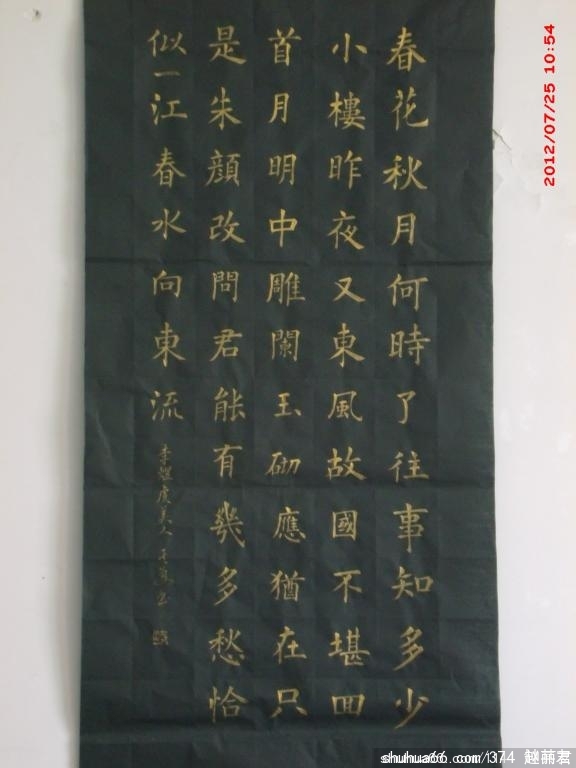 春花秋月何時了往事知多少
小樓昨夜又東風故國不堪回
首月明中雕闌玉砌應猶在只
是朱顏改問君能有幾多愁恰
似一江春水向東流
李煜虞美人
2012/07/25 10:54
shuhua66.com\374 赵萌君